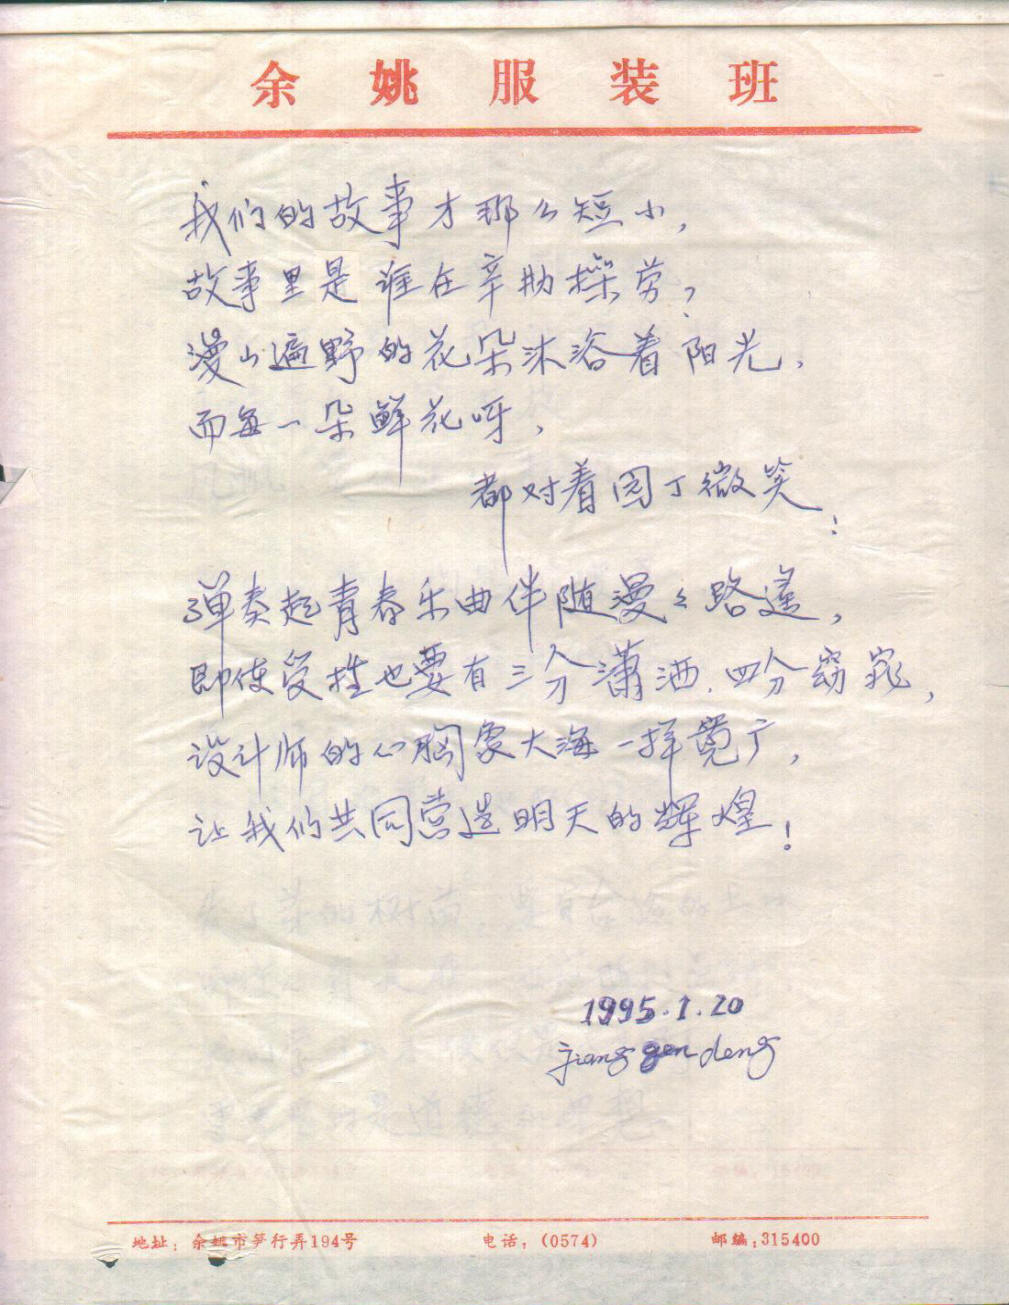 余姚服装班
我们的故事才那么短小,
故事里是谁在辛勤操劳?
漫山遍野的花朵沐浴着阳光,
而每一朵鲜花呀,
都对着园丁微笑!
弹奏起青春乐曲伴随漫々路遥,
即使受挫也要有三分潇洒,四分窈窕,
设计师的心胸要大海一样宽广,
让我们共同营造明天的辉煌!
1995.1.20
jiang gen deng
地址:余姚市笋行弄194号 电话:(0574) 邮编:315400